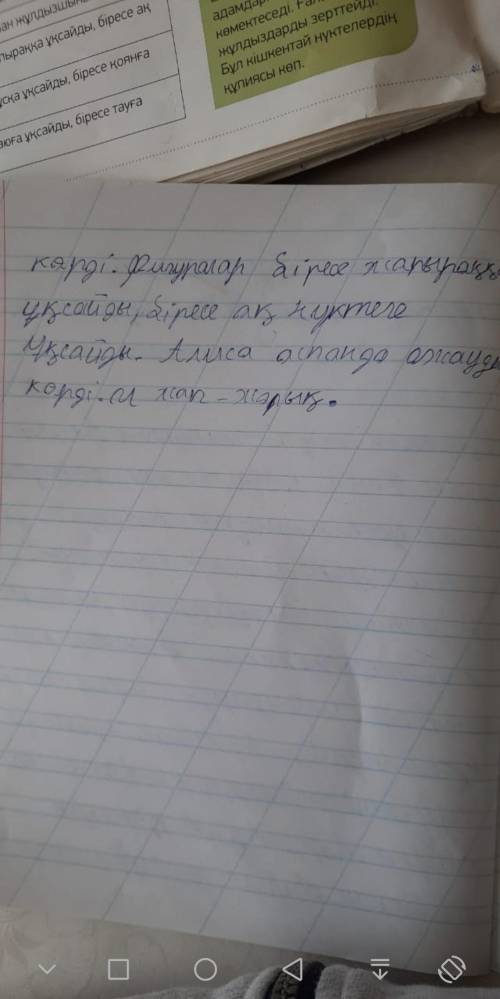 ан жұлдызшы
пыраққа ұқсайды, біресе ақ
ұсқа ұқсайды, біресе қоянға
аюға ұқсайды, біресе тауға
адамдар
көмектеседі. Ғал
жұлдыздарды зерттейді.
Бұл кішкентай нүктелердің
құпиясы көп.
көрді. Фигуралар біресе жапыраққа
ұқсайды, біресе ақ нүктеге
ұқсайды. Алиса аспанда ожауды
көрді. Ол жап-жарық.